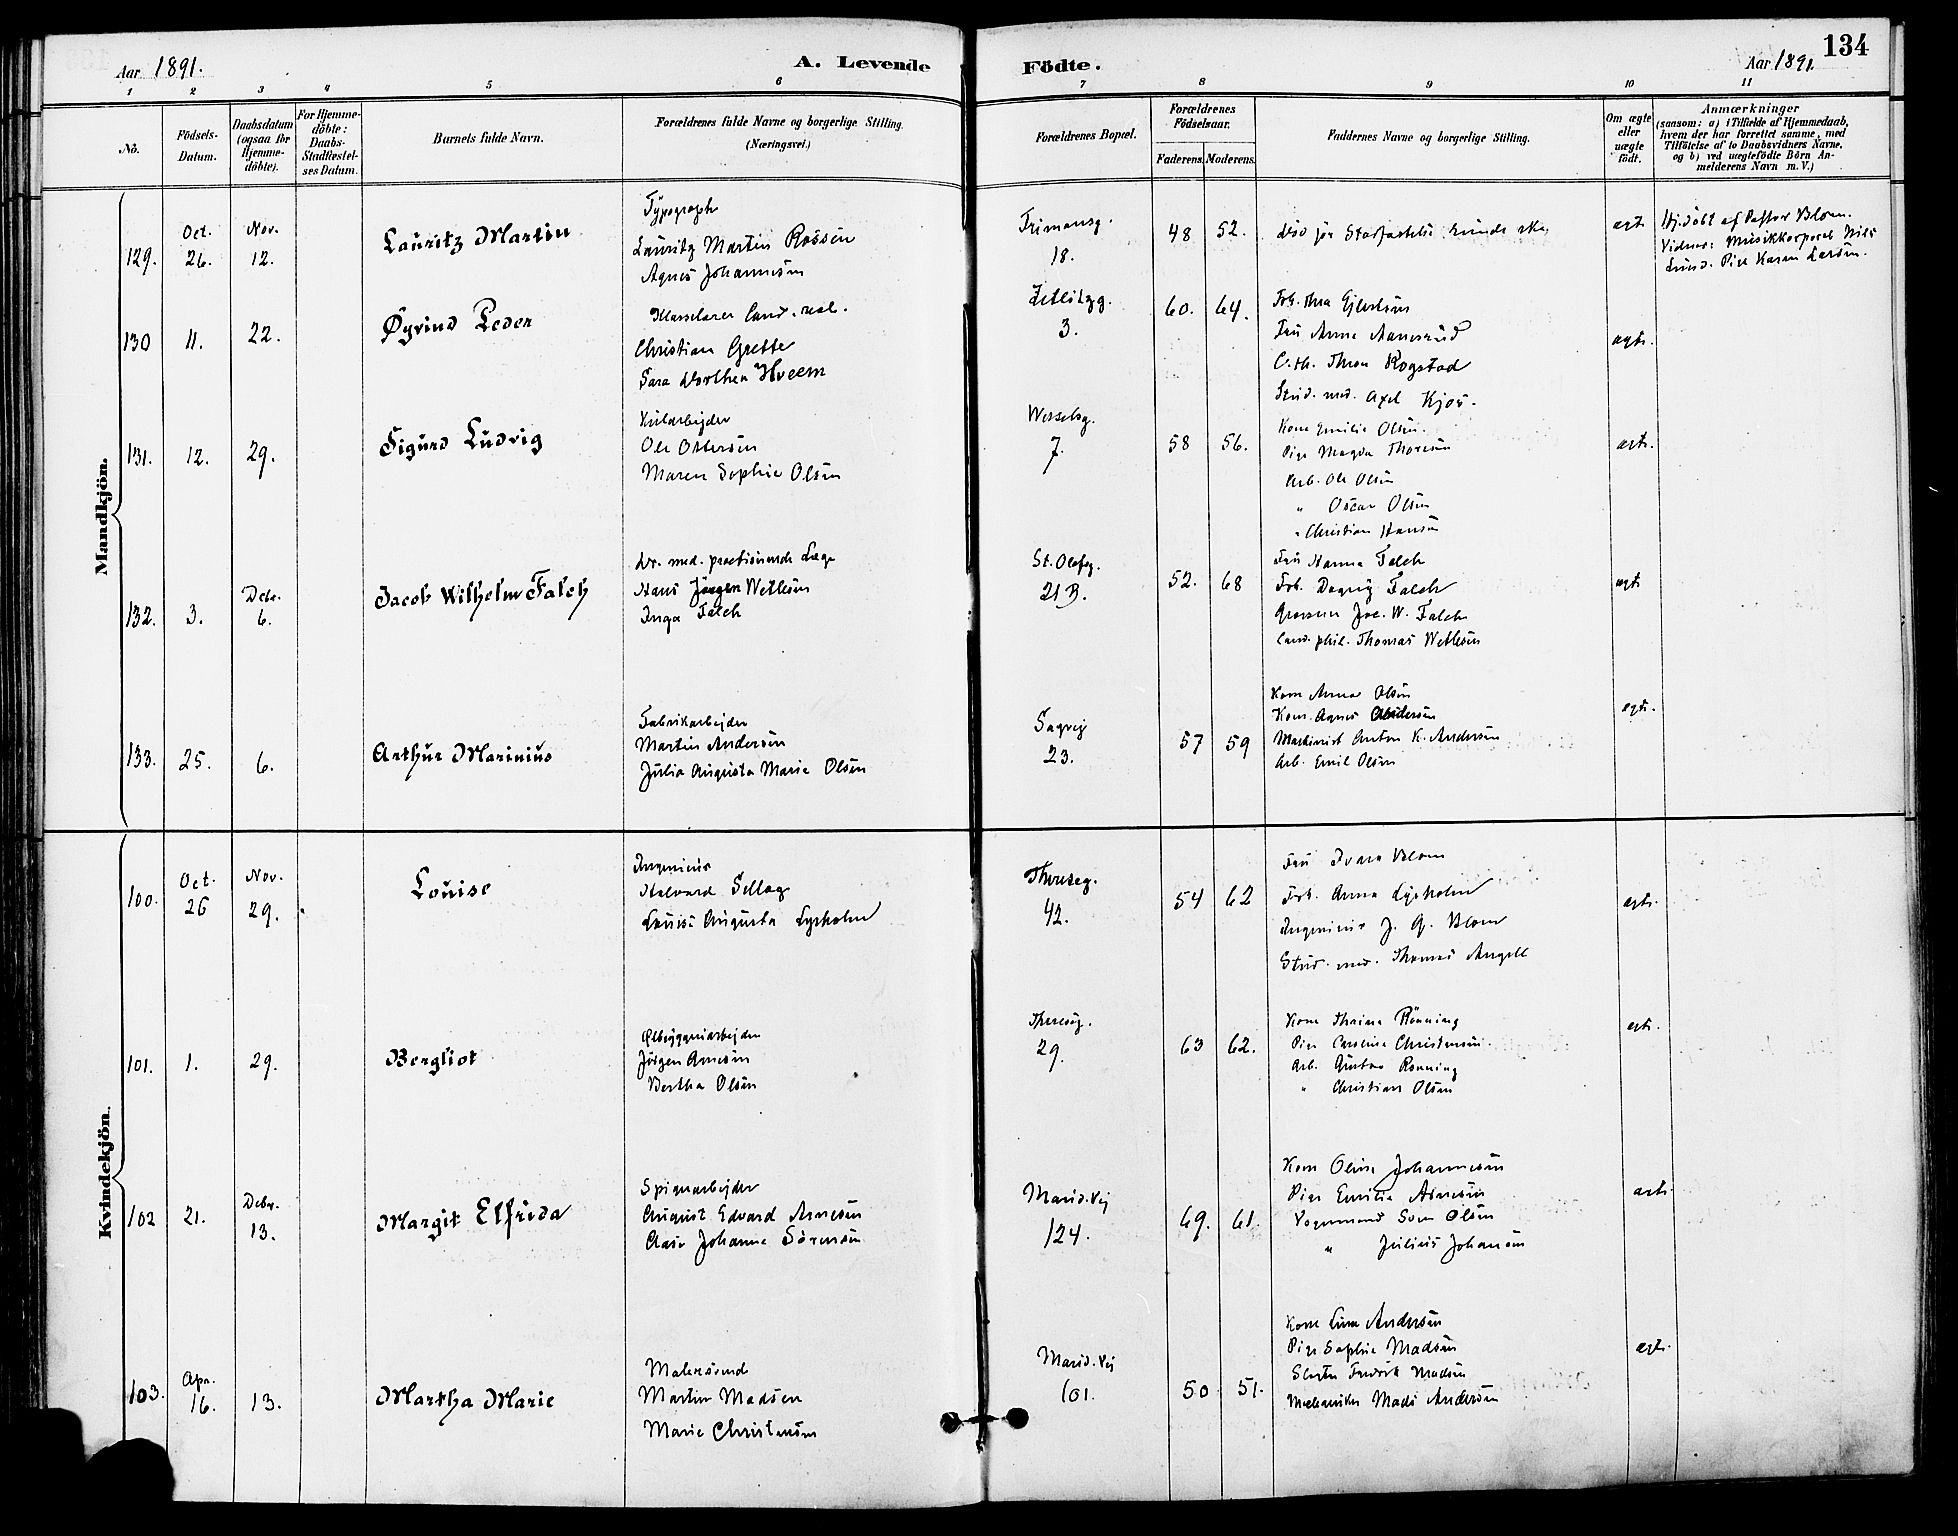 Aar 1891.
A. Levende Födte.
Aar 1891.
134
1 2 3 4 5 6 7 8 9 10 11
No.
Födsels-Datum.
Daabsdatum (ogsaa for Hjemme-döbte).
For Hjemme-döbte: Daabs-Stadfæstel-ses Datum.
Barnets fulde Navn.
Forældrenes fulde Navne og borgerlige Stilling. (Næringsvei.)
Forældrenes Bopæl.
Forældrenes Födselsaar.
Faderens. Moderens.
Faddernes Navne og borgerlige Stilling.
Om ægte eller uægte födt.
Anmærkninger (saasom: a) i Tilfælde af Hjemmedaab, hvem der har forrettet samme, med Tilföielse af to Daabsvidners Navne, og b) ved uægtefödte Börn An-melderens Navn m. V.)
Mandkjön.
129.
Oct. 26.
Nov. 12.
Lauritz Martin
Typograph
Lauritz Martin Rossen
Agnes Johannesen
Frimansg. 18.
48 52.
egt.
Hj.döbt af Pastor Blom.
Vidner: Musikkorporal Nils
Lund. Pige Karen Larsen.
130
11.
22.
Øyvind Peder
Klasselærer Cand. real.
Christian Grette
Sara Dorthea Hveem
Zetlitzg. 3.
60. 64.
Frk. Thea Ejlertsen
Fru Anna Aanesrud
C. th. Thron Rogstad
Stud. med. Axel Kjos.
egte.
131.
12.
29.
Sigurd Ludvig
Kularbejder
Ole Ottersen
Maren Sophie Olsen
Wesselsg. 7.
58 56.
Kone Emilie Olsen.
Pige Magda Thoresen
Arb. Ole Olsen
" Oscar Olsen
" Christian Hansen
egte.
132.
3.
Debr. 6.
Jacob Wilhelm Falch
Dr. med. practiserende Læge
Hans Jørgen Wetlesen
Inga Falch
St. Olafsg. 21 B.
52. 68
Fru Hanna Falch
Frk. Dagny Falch
Grosserer Jac. W. Falch
Cand. phil. Thomas Wetlesen
egt.
133.
25.
6.
Arthur Marinius
Fabrikarbejder
Martin Andersen
Julia Augusta Marie Olsen
Sagvej 23.
57 59
Kone Anna Olsen
Kone Agnes Andersen
Maskinist Anton K. Andersen
Arb. Emil Olsen
egte.
Kvindekjön.
100.
Oct. 26
Nov. 29.
Louise
Ingeniør
Halvard Sellæg
Louise Augusta Lysholm
Thereseg. 42.
54 62
Fru Ivara Blom
Frk. Anna Lysholm
Ingeniør J. G. Blom
Stud. med. Thomas Angell
egte.
101.
1.
29.
Bergliot
Ølbryggeriarbejder
Jørgen Arnesen
Bertha Olsen
Thereseg. 29.
63 62.
Kone Thrine Rönning
Pige Caroline Christensen.
Arb. Gustav Rönning
" Christian Olsen
egte.
102
21.
Debr. 13.
Margit Elfrida
Spigerarbejder
August Edvard Arnesen
Clara Johanne Sörensen
Marid.vej 124.
69. 61.
Kone Oline Johannesen
Pige Emilie Arnesen
Vognmand Sven Olsen
" Julius Johansen
egte.
103.
Apr. 16.
13.
Martha Marie
Malersvend
Martin Madsen
Marie Christensen
Marid.vej 101.
50. 51.
Kone Lina Andersen
Pige Sophie Madsen
Slagter Fredrik Madsen
Mechaniker Mads Andersen
egte.